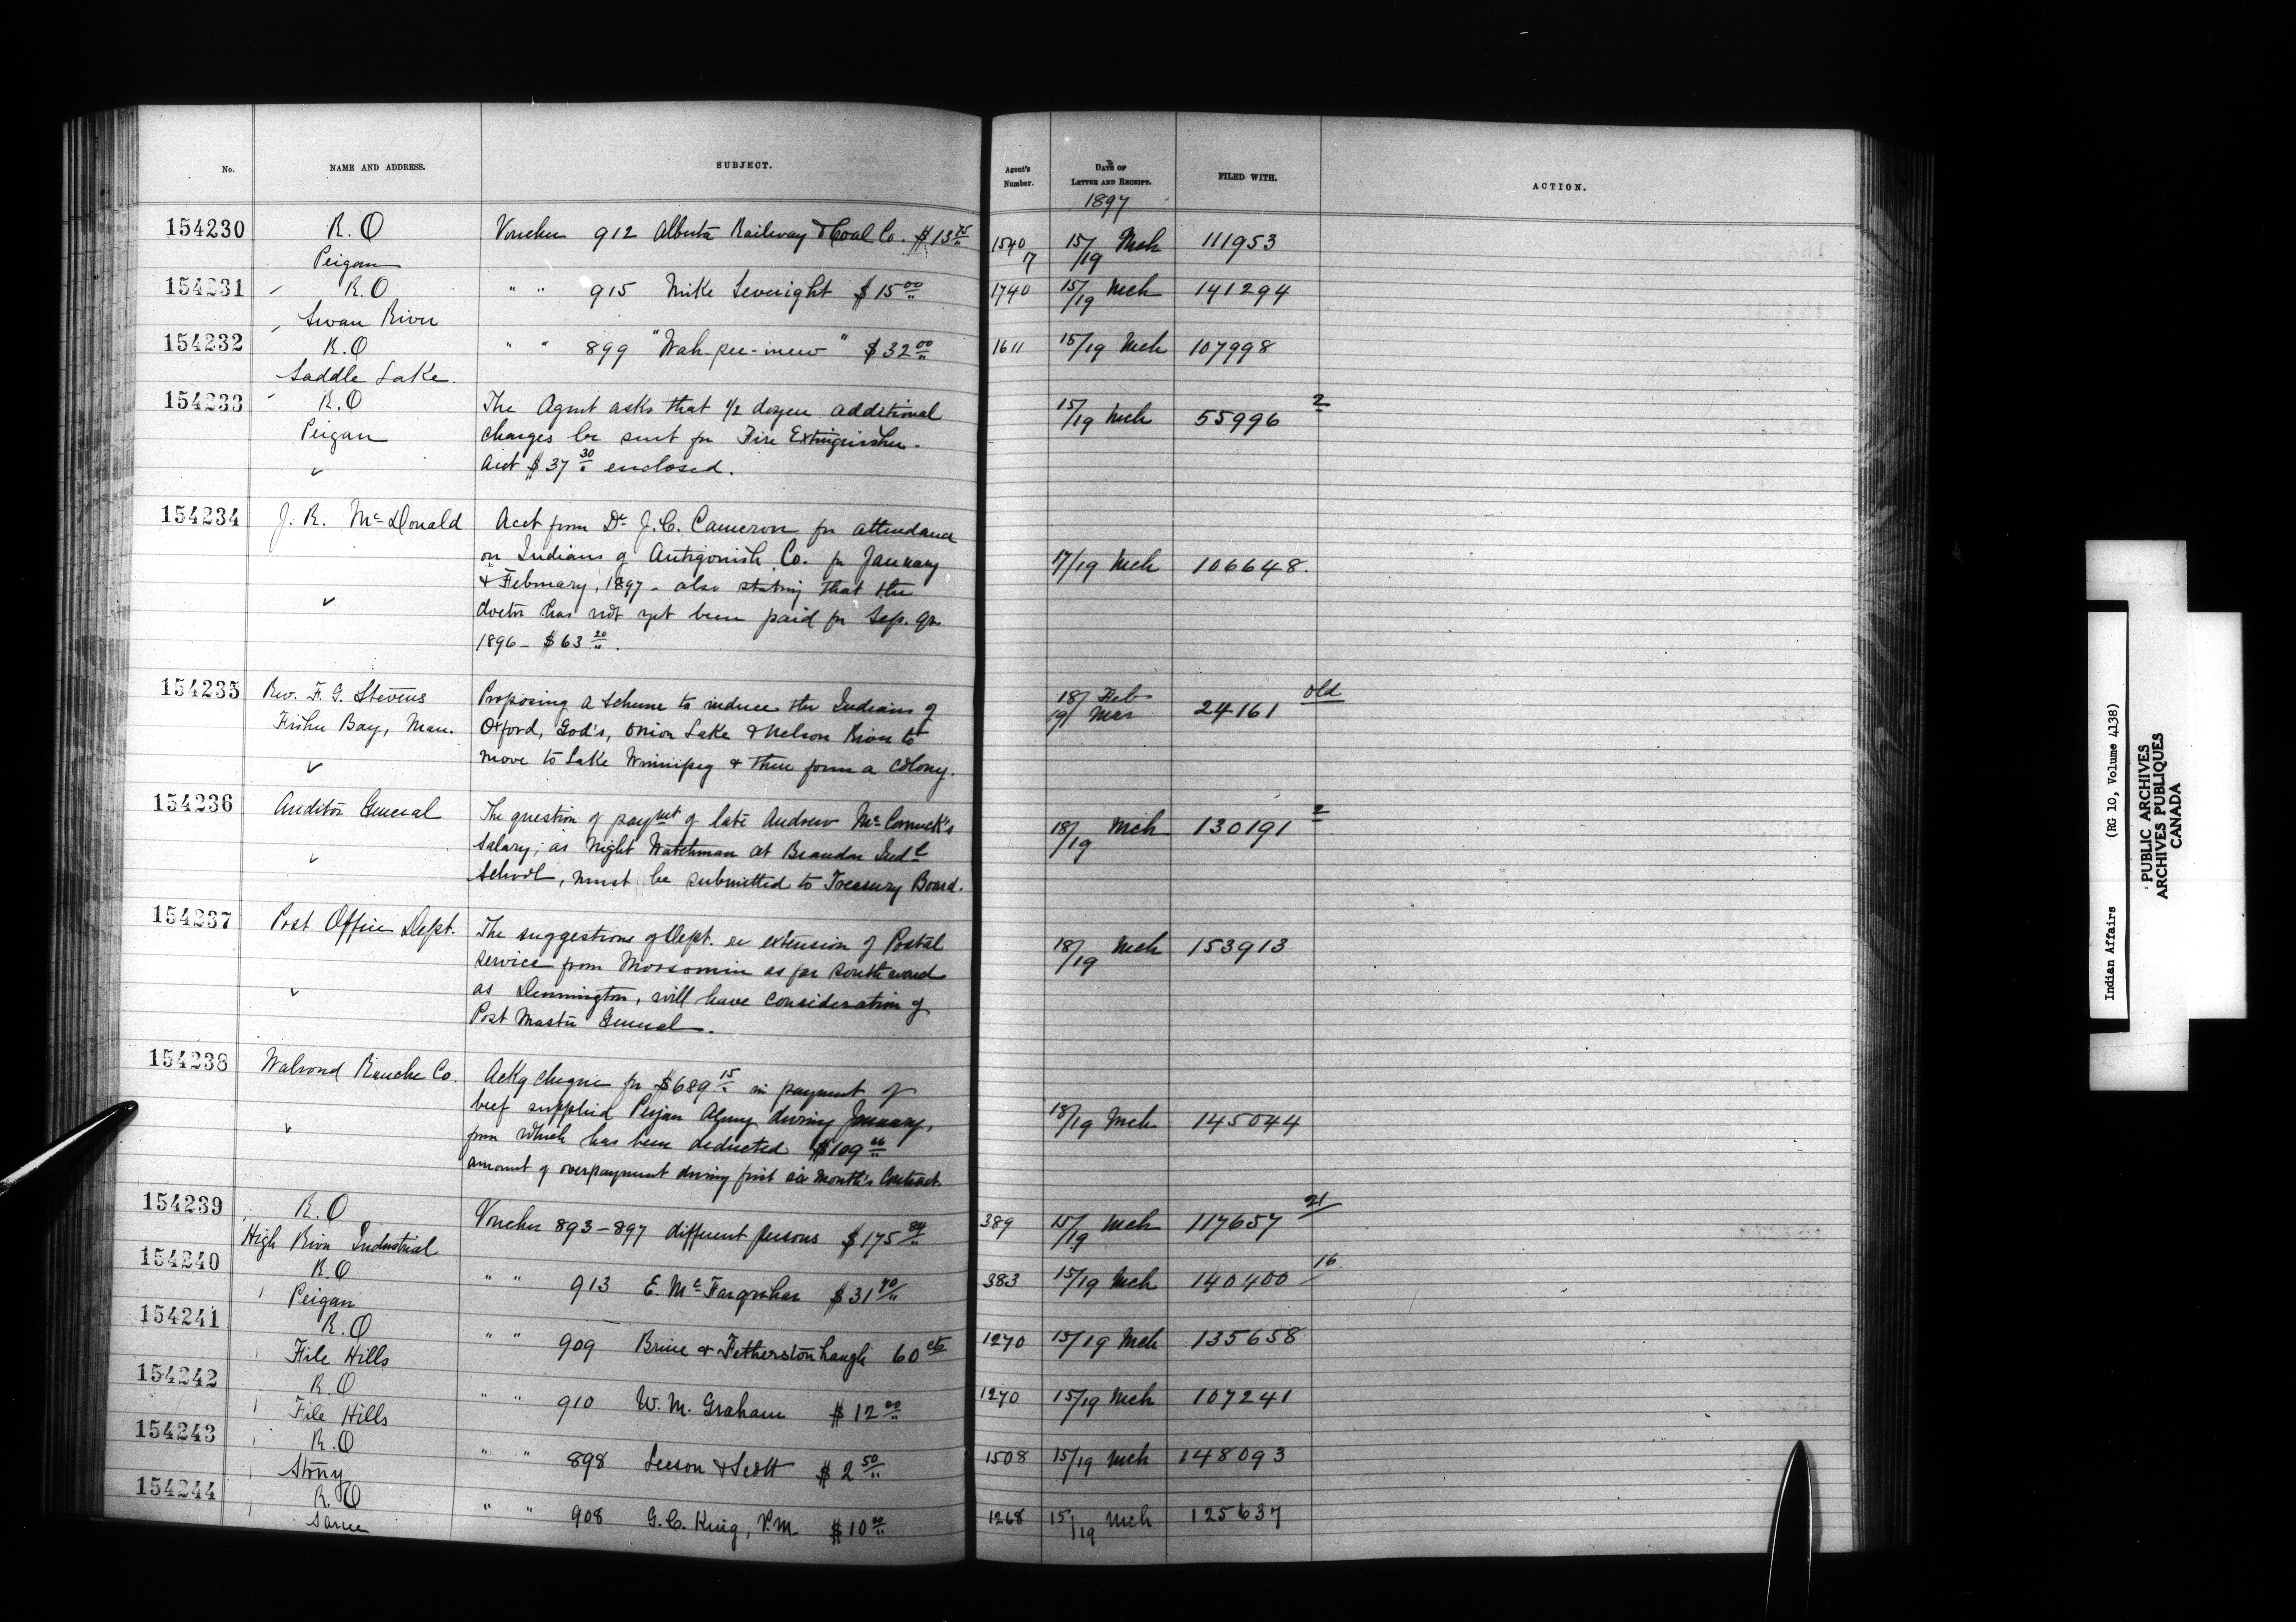 No. NAME AND ADDRESS. SUBJECT. Agent's Number. DATE OF LETTER AND RECEIPT. FILED WITH. ACTION.
1897
154230 R.O Voucher 912 Alberta Railway & Coal Co. $13 75/" 1540 15/19 Mch 111953
Peigan 7
154231 R.O " " 915 Mike Leveright $15 00/" 1740 15/19 Mch 141294
Swan River
154232 R.O " " 899 "Wah-pee-mew" $32 00/" 1611 15/19 Mch 107998
Saddle Lake.
154233 R.O The Agent asks that 1/2 dozen additional 15/19 Mch 55996 2
Peigan charges be sent for Fire Extinguisher.
Acct $37 30/" enclosed.
154234 J. R. McDonald Acct from Dr J. C. Cameron for attendance
on Indians of Antigonish Co. for January 17/19 Mch 106648.
& February, 1897 - also stating that the
doctor has not yet been paid for Sep. qr
1896 - $63 20/".
154235 Rev. F. G. Stevens Proposing a scheme to induce the Indians of 18/ Feb old
Fisher Bay, Man. Oxford, God's, Onion Lake & Nelson River to 19/ Mar 24161
move to Lake Winnipeg & there form a colony.
154236 Auditor General The question of paymt of late Andrew McCormack's 18/19 Mch 130191 2
salary, as Night Watchman at Brandon Indl
School, must be submitted to Treasury Board.
154237 Post Office Dept. The suggestions of Dept. re extension of Postal 18/19 Mch 153913
service from Moosomin as far southward
as Dennington, will have consideration of
Post Master General.
154238 Walrond Ranche Co. Ackg cheque for $689 15/" in payment of
beef supplied Peigan Agency during January, 18/19 Mch 145044
from which has been deducted $109 66/"
amount of overpayment during first six month's Contract.
154239 R.O Voucher 893-897 different persons $175 84/" 389 15/19 Mch 117657 21
High River Industrial
154240 R.O " " 913 E. McFarquhar $31 40/" 383 15/19 Mch 140400 16
Peigan
154241 R.O " " 909 Brice & Fetherstonhaugh 60 cts 1270 15/19 Mch 135658
File Hills
154242 R.O " " 910 W. M. Graham $12 00/" 1270 15/19 Mch 107241
File Hills
154243 R.O " " 898 Leeson & Scott $2 50/" 1508 15/19 Mch 148093
Stony
154244 R.O " " 908 G. C. King, P.M. $10 00/" 1268 15/19 Mch 125637
Sarcee
Indian Affairs (RG 10, Volume 4138)
PUBLIC ARCHIVES
ARCHIVES PUBLIQUES
CANADA